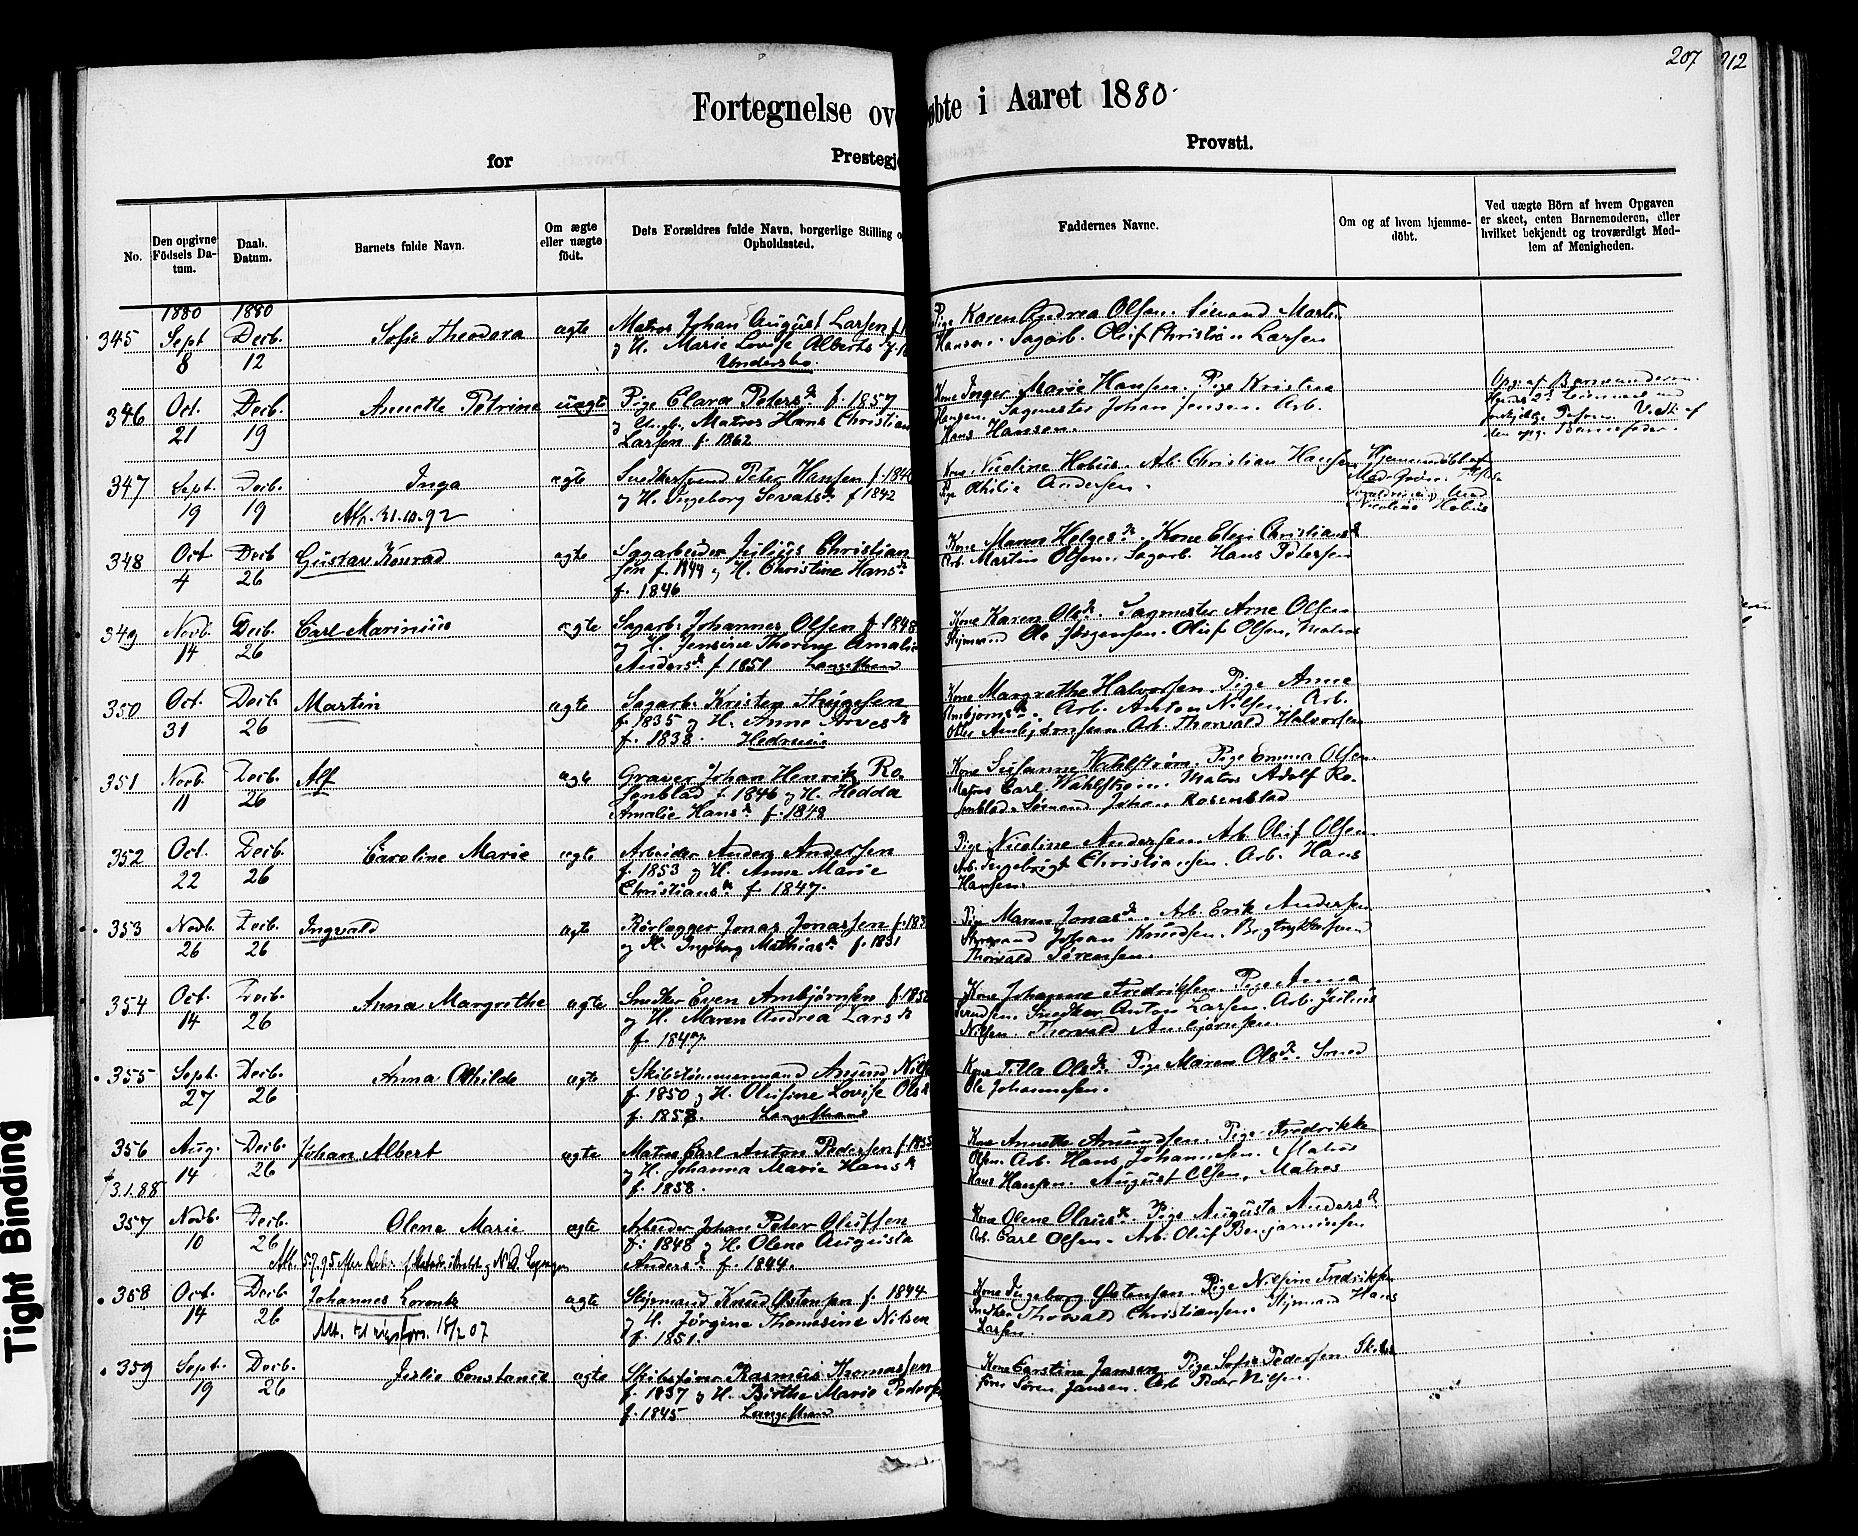 207
212
Fortegnelse ov øbte i Aaret 1880.
for Prestegj Provsti.
No.
Den opgivne Födsels Da-tum.
Daab. Datum.
Barnets fulde Navn.
Om ægte eller uægte födt.
Dets Forældres fulde Navn, borgerlige Stilling o Opholdssted.
Faddernes Navne.
Om og af hvem hjemme-döbt.
Ved uægte Börn af hvem Opgaven er skeet, enten Barnemoderen, eller hvilket bekjendt og troværdigt Med-lem af Menigheden.
1880 1880
345 Sept 8 Decb. 12 Sofie Theodora ægte
Matros Johan August Larsen f.
og H. Marie Lovise Alberts
Pige Karen Andrea Olsen. Sömand Martin
Hansen. Sagarb. Oluf Christian Larsen
346 Oct. 21 Decb. 19 Annette Petrine uægte
Pige Clara Petersd. f. 1857
og Matros Hans Christian
Larsen f. 1862
Kone Inger Marie Hansen. Pige Kristine
Hansen. Sagmester Johan Jensen. Arb.
Hans Hansen.
Opg. af Barnemoderen.
den opg. Barnefader.
347 Sept. 19 Decb. 19 Inga ægte
Att. 21.10.92
Snedkersvend Peter Hansen f. 1840
og H. Ingeborg f 1842
Kone Nicoline Hobüs. Arb. Christian Hansen
Pige Othilie Andersen.
Hjemmedöbt af
Nicoline Hobüs
348 Oct. 4 Decb 26 Gustav Konrad ægte
Sagarbeider Julius Christian
sen f. 1849 og H. Christine Hansd.
f. 1846
Kone Maren Helgesd. Kone Elen Christiansd.
Arb. Martin Olsen. Sagarb. Hans Petersen
349 Novb. 14 Decb. 26 Carl Marinius ægte
Sagarb. Johannes Olsen f. 1848
og H. Jensine Thorine Amalie
Andersd. f 1851 Langestrand
Kone Karen Olsd. Sagmester Arne Olsen
Styrmand Ole Jörgensen. Oluf Olsen, Matros
350 Oct. 31 Decb. 26 Martin ægte
Sagarb. Kristen Thygesen
f. 1835 og H. Anne Arvesd.
f. 1838. Hedrum
Kone Margrethe Halvorsen. Pige Anne
Ambjörnsd. Arb. Anton Nilsen. Arb.
Ambjörnsen. Arb. Thorvald Halvorsen
351 Novb. 11 Decb. 26 Alf ægte
Graver Johan Henrik Ro-
senblad f. 1846 og H. Hedda
Amalie Hansd. f. 1848
Kone Susanne Wahlström. Pige Emma Olsen.
Matros Carl Wahlström. Matros Adolf Ro-
senblad. Sömand Johan Rosenblad
352 Oct. 22 Decb. 26 Caroline Marie ægte
Arbeider Anders Andersen
f. 1853 og H. Anne Marie
Christiansd. f. 1847.
Pige Nicoline Andersen. Arb. Oluf Olsen.
Arb. Ingebrigt Christiansen. Arb. Hans
Hansen.
353 Novb. 26 Decb. 26 Ingvald ægte
Rörlægger Jonas Jonassen f. 183
og H. Ingeborg Mathiasd. f. 1831
Pige Maren Jonasd. Arb. Erik Andersen
Styrmand Johan Knudsen. Bogtrykkersvend
Thorvald Sörensen.
354 Oct. 14 Decb. 26 Anna Margrethe ægte
Snedker Even Ambjörnsen f. 1852
og H. Maren Andrea Larsd.
f. 1847.
Kone Johanne Fredriksen. Pige Anna
Snedker Anton Larsen. Arb. Julius
Nilsen. Thorvald Ambjörnsen.
355 Sept. 27 Decb. 26 Anna Othilde ægte
Skibstömmermand Amund Nils
f. 1850 og H. Olufine Lovise Olsd
f. 1857. Langestrand
Kone Tilla Olsd. Pige Maren Olsd. Smed
Ole Johannesen.
356 Aug. 14 Decb. 26 Johan Albert ægte
† 3.1.88
Matros Carl Anton Pedersen f. 1855
og H. Johanna Marie Hansd
f. 1858.
Kone Annette Amundsen. Pige Fredrikke
Olsen. Arb. Hans Johannesen. Matros
Hans Hansen. August Olsen, Matros
357 Novb. 10 Decb. 26 Olene Marie ægte
Arbeider Johan Peter Olufsen
f. 1848 og H. Olene Augusta
Andersd. f. 1844.
Kone Olene Olausd. Pige Augusta Andersd.
Arb. Carl Olsen. Arb. Oluf Benjaminsen
358 Oct. 14 Decb 26 Johannes Lorentz ægte
Styrmand Knud Östensen f. 1844
og H. Jörgine Thomasine Nilsen
f. 1851.
Kone Ingeborg Östensen. Pige Nilsine Fredriksen
Snedker Thorvald Christiansen. Styrmand Hans
Larsen
359 Sept. 19 Decb. 26 Julie Constance ægte
Skibsförer Rasmus Thomassen
f. 1837 og H. Birthe Marie Peders
f. 1845 Langestrand
Kone Carstine Jansen. Pige Sofie Pedersen. Skibs
förer Sören Jansen. Arb. Peder Nilsen.
Tight Binding